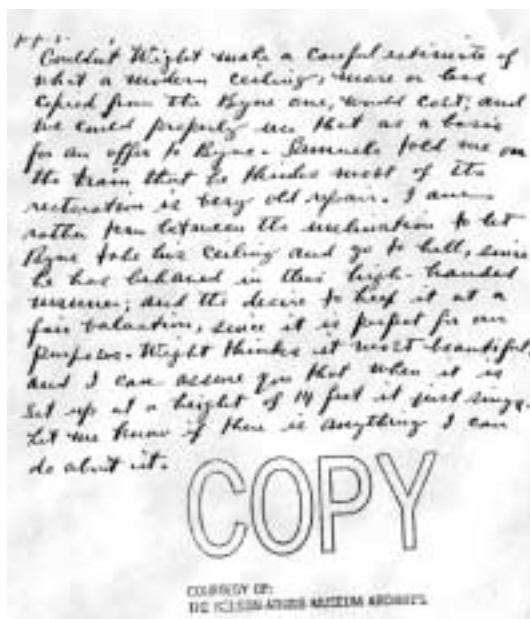 P.P.S.
Couldn't Wight make a careful estimate of
what a modern ceiling, more or less
copied from the Byne one, would cost; and
we could properly use that as a basis
for an offer to Byne. Samuels told me on
the train that he thinks most of the
restoration is very old repair. I am
rather torn between the inclination to let
Byne take his ceiling and go to hell, since
he has behaved in this high-handed
manner; and the desire to keep it at a
fair valuation, since it is perfect for our
purposes. Wight thinks it most beautiful,
and I can assure you that when it is
set up at a height of 14 feet it just sings.
Let me know if there is anything I can
do about it.
COPY
COURTESY OF:
THE NELSON-ATKINS MUSEUM ARCHIVES